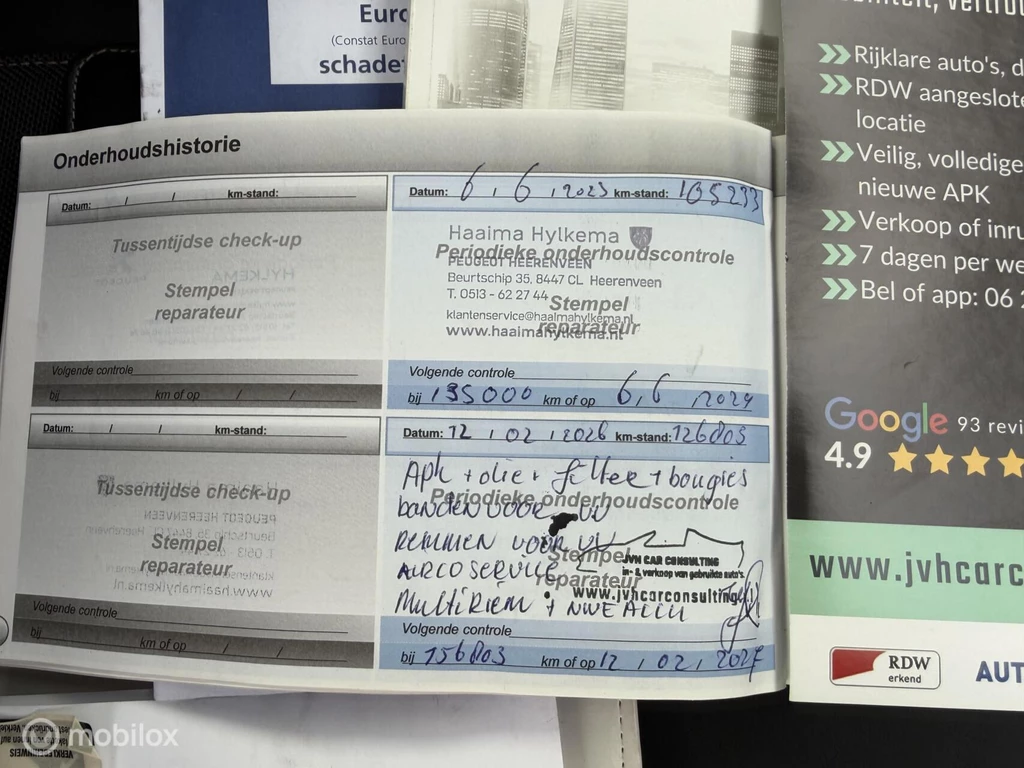 Euro
(Constat Euro
schadef
Onderhoudshistorie
/ / km-stand:
Datum:
Tussentijdse check-up
Stempel
reparateur
Volgende controle
bij km of op / /
Datum: 6, 6, 2023 km-stand: 105233
Haaima Hylkema
Periodieke onderhoudscontrole
PEUGEOT HEERENVEEN
Beurtschip 35, 8447 CL Heerenveen
T. 0513 - 62 27 44
Stempel
klantenservice@haaimahylkema.nl
reparateur
www.haaimahylkema.nl
Volgende controle
bij 135000 km of op 6, 6, 2024
Datum: / / km-stand:
Tussentijdse check-up
Stempel
reparateur
Volgende controle
bij km of op / /
Datum: 12, 02, 2026 km-stand: 126803
Apk + olie + filter + bougies
Periodieke onderhoudscontrole
banden voor vv
remmen voor vv
Stempel
JVH CAR CONSULTING
in- & verkoop van gebruikte auto's.
airco service
reparateur
www.jvhcarconsulting
Multiriem + nwe accu
Volgende controle
bij 156803 km of op 12, 02, 2027
Rijklare auto's, d
RDW aangeslote
locatie
Veilig, volledige
nieuwe APK
Verkoop of inru
7 dagen per we
Bel of app: 06 2
Google 93 revi
4.9
www.jvhcarc
RDW
erkend
AUT
mobilox